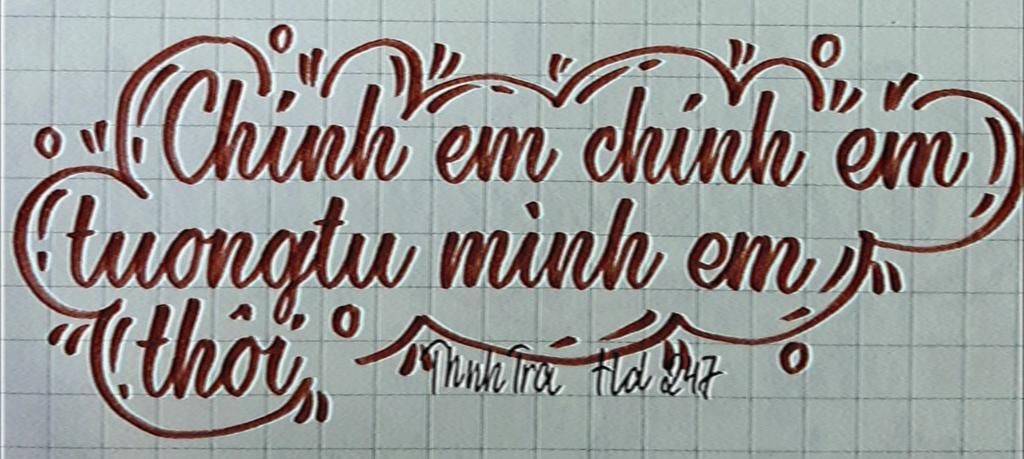 Chính em chính em
tuongtu mình em
thôi
Thnh Trà Hd 247